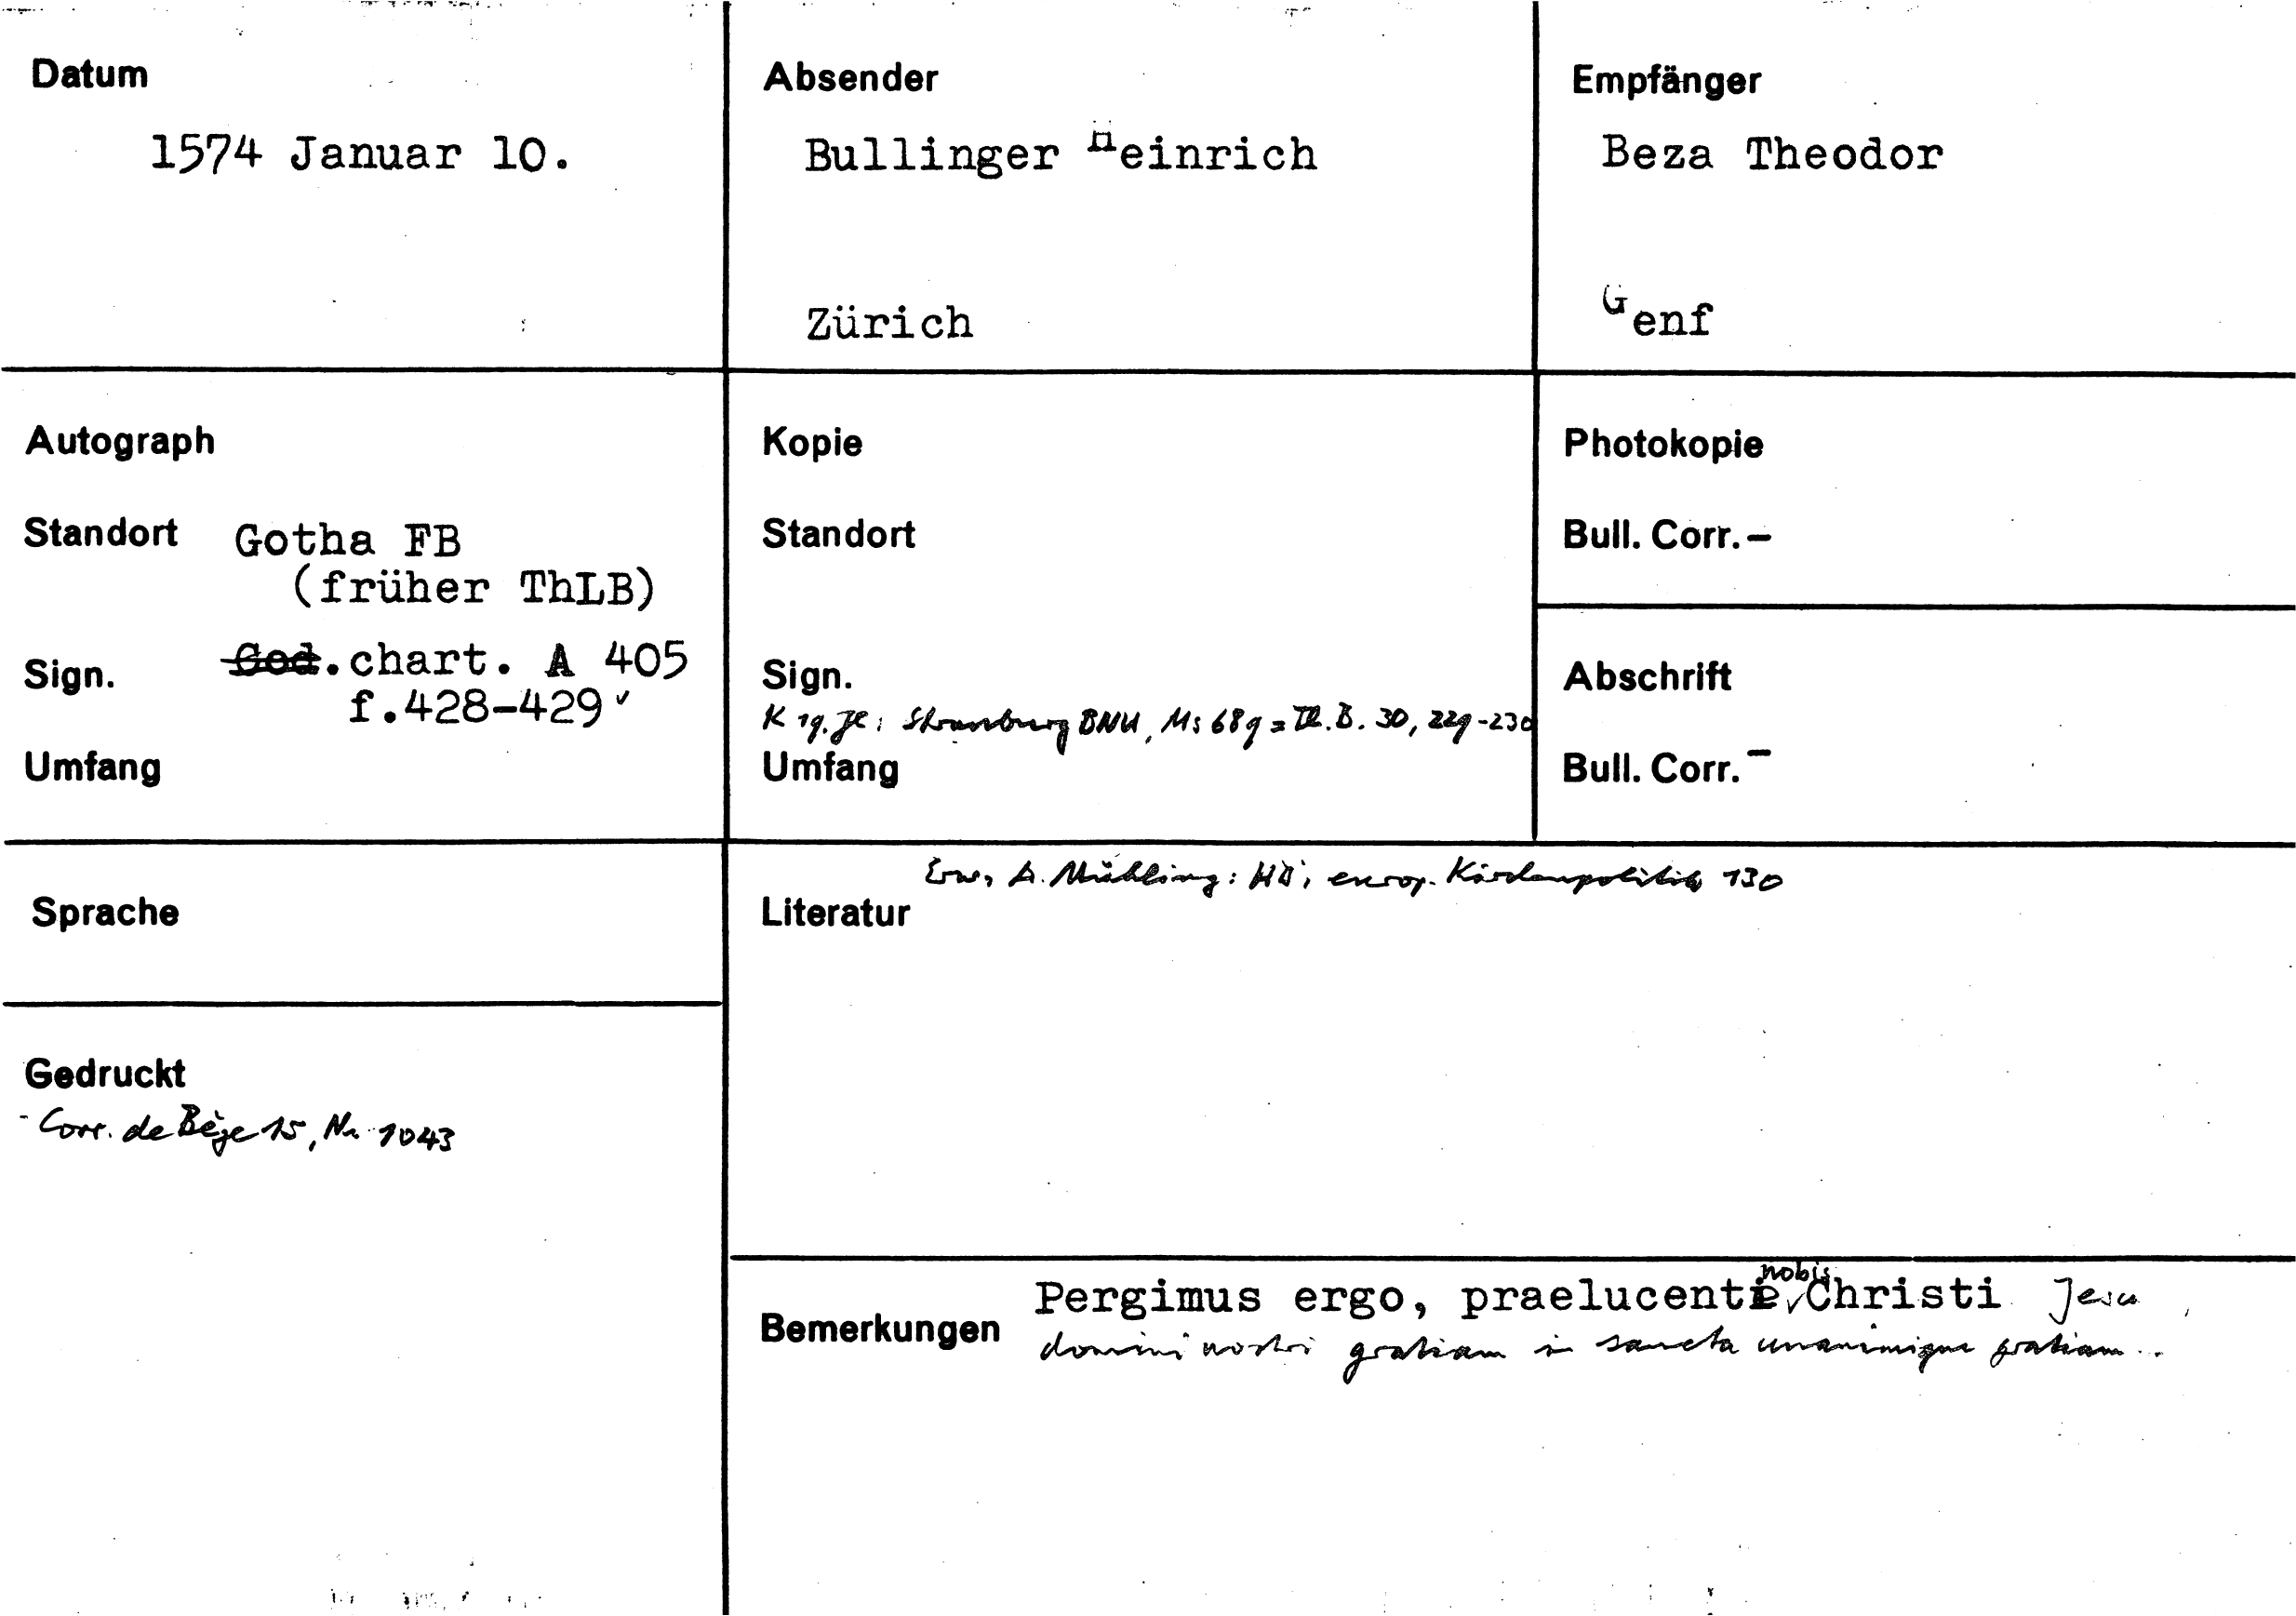 Datum
1574 Januar 10.
Absender
Bullinger Heinrich
Zürich
Empfänger
Beza Theodor
Genf
Autograph
Standort Gotha FB
(früher ThLB)
Sign. Cod. chart. A 405
f.428-429
Umfang
Kopie
Standort
Sign.
K 19. Jh: Strassburg BNU, Ms 689 = III. B. 30, 229-230
Umfang
Photokopie
Bull. Corr. -
Abschrift
Bull. Corr. -
Sprache
Gedruckt
- Corr. de Bèze 15, Nr. 1043
Erw. A. Mühling: HB's europ. Kirchenpolitik 130
Literatur
Bemerkungen Pergimus ergo, praelucente nobis Christi Jesu
domini nostri gratiam in sancta unanimique gratiam ..